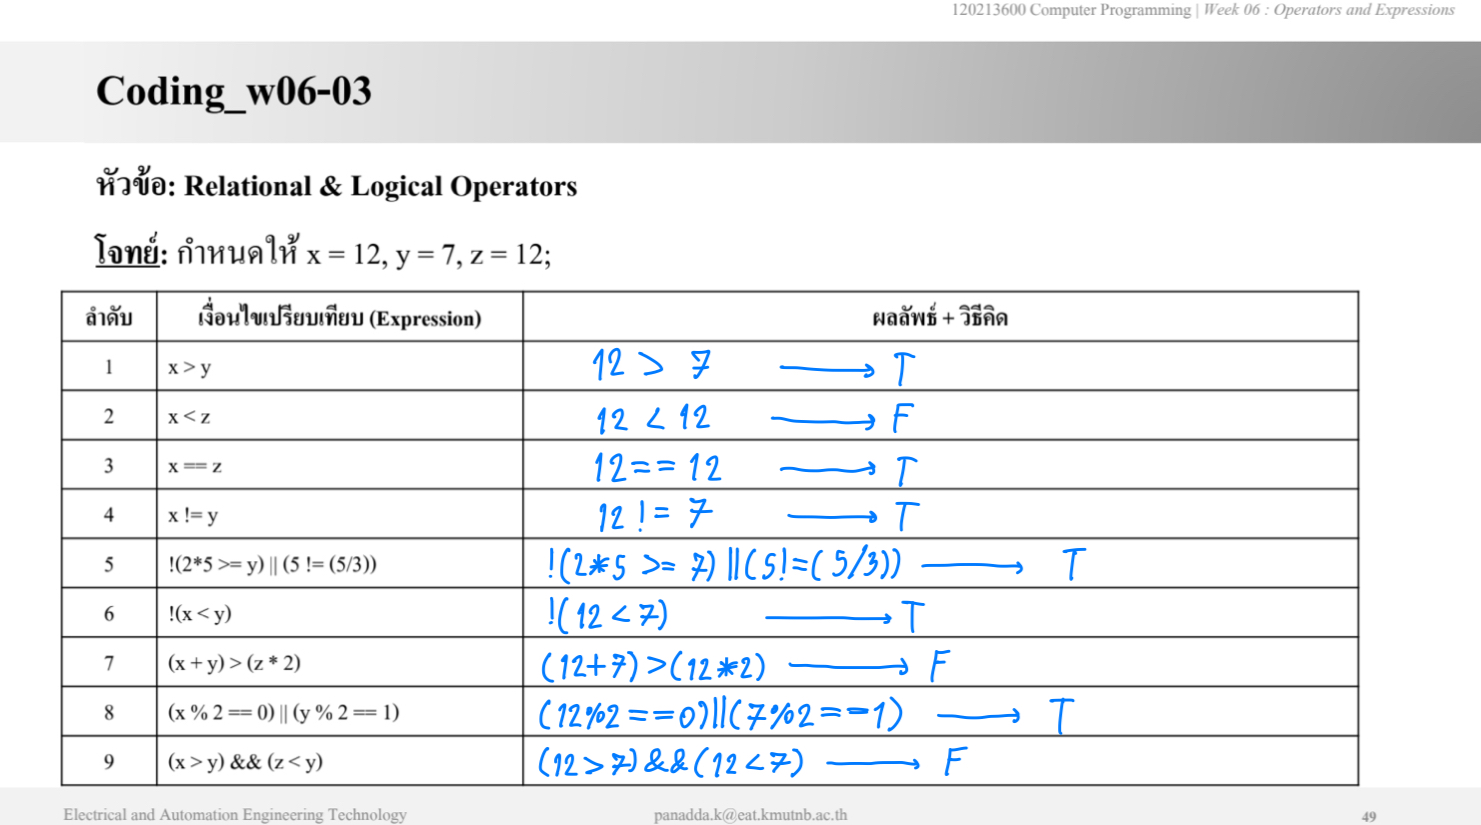 120213600 Computer Programming | Week 06 : Operators and Expressions
Coding_w06-03
หัวข้อ: Relational & Logical Operators
โจทย์: กำหนดให้ x = 12, y = 7, z = 12;
ลำดับ เงื่อนไขเปรียบเทียบ (Expression) ผลลัพธ์ + วิธีคิด
1 x > y 12 > 7 → T
2 x < z 12 < 12 → F
3 x == z 12 == 12 → T
4 x != y 12 != 7 → T
5 !(2*5 >= y) || (5 != (5/3)) !(2*5 >= 7) || (5!=(5/3)) → T
6 !(x < y) !(12 < 7) → T
7 (x + y) > (z * 2) (12+7) > (12*2) → F
8 (x % 2 == 0) || (y % 2 == 1) (12%2 == 0) || (7%2 == 1) → T
9 (x > y) && (z < y) (12 > 7) && (12 < 7) → F
Electrical and Automation Engineering Technology panadda.k@eat.kmutnb.ac.th 49